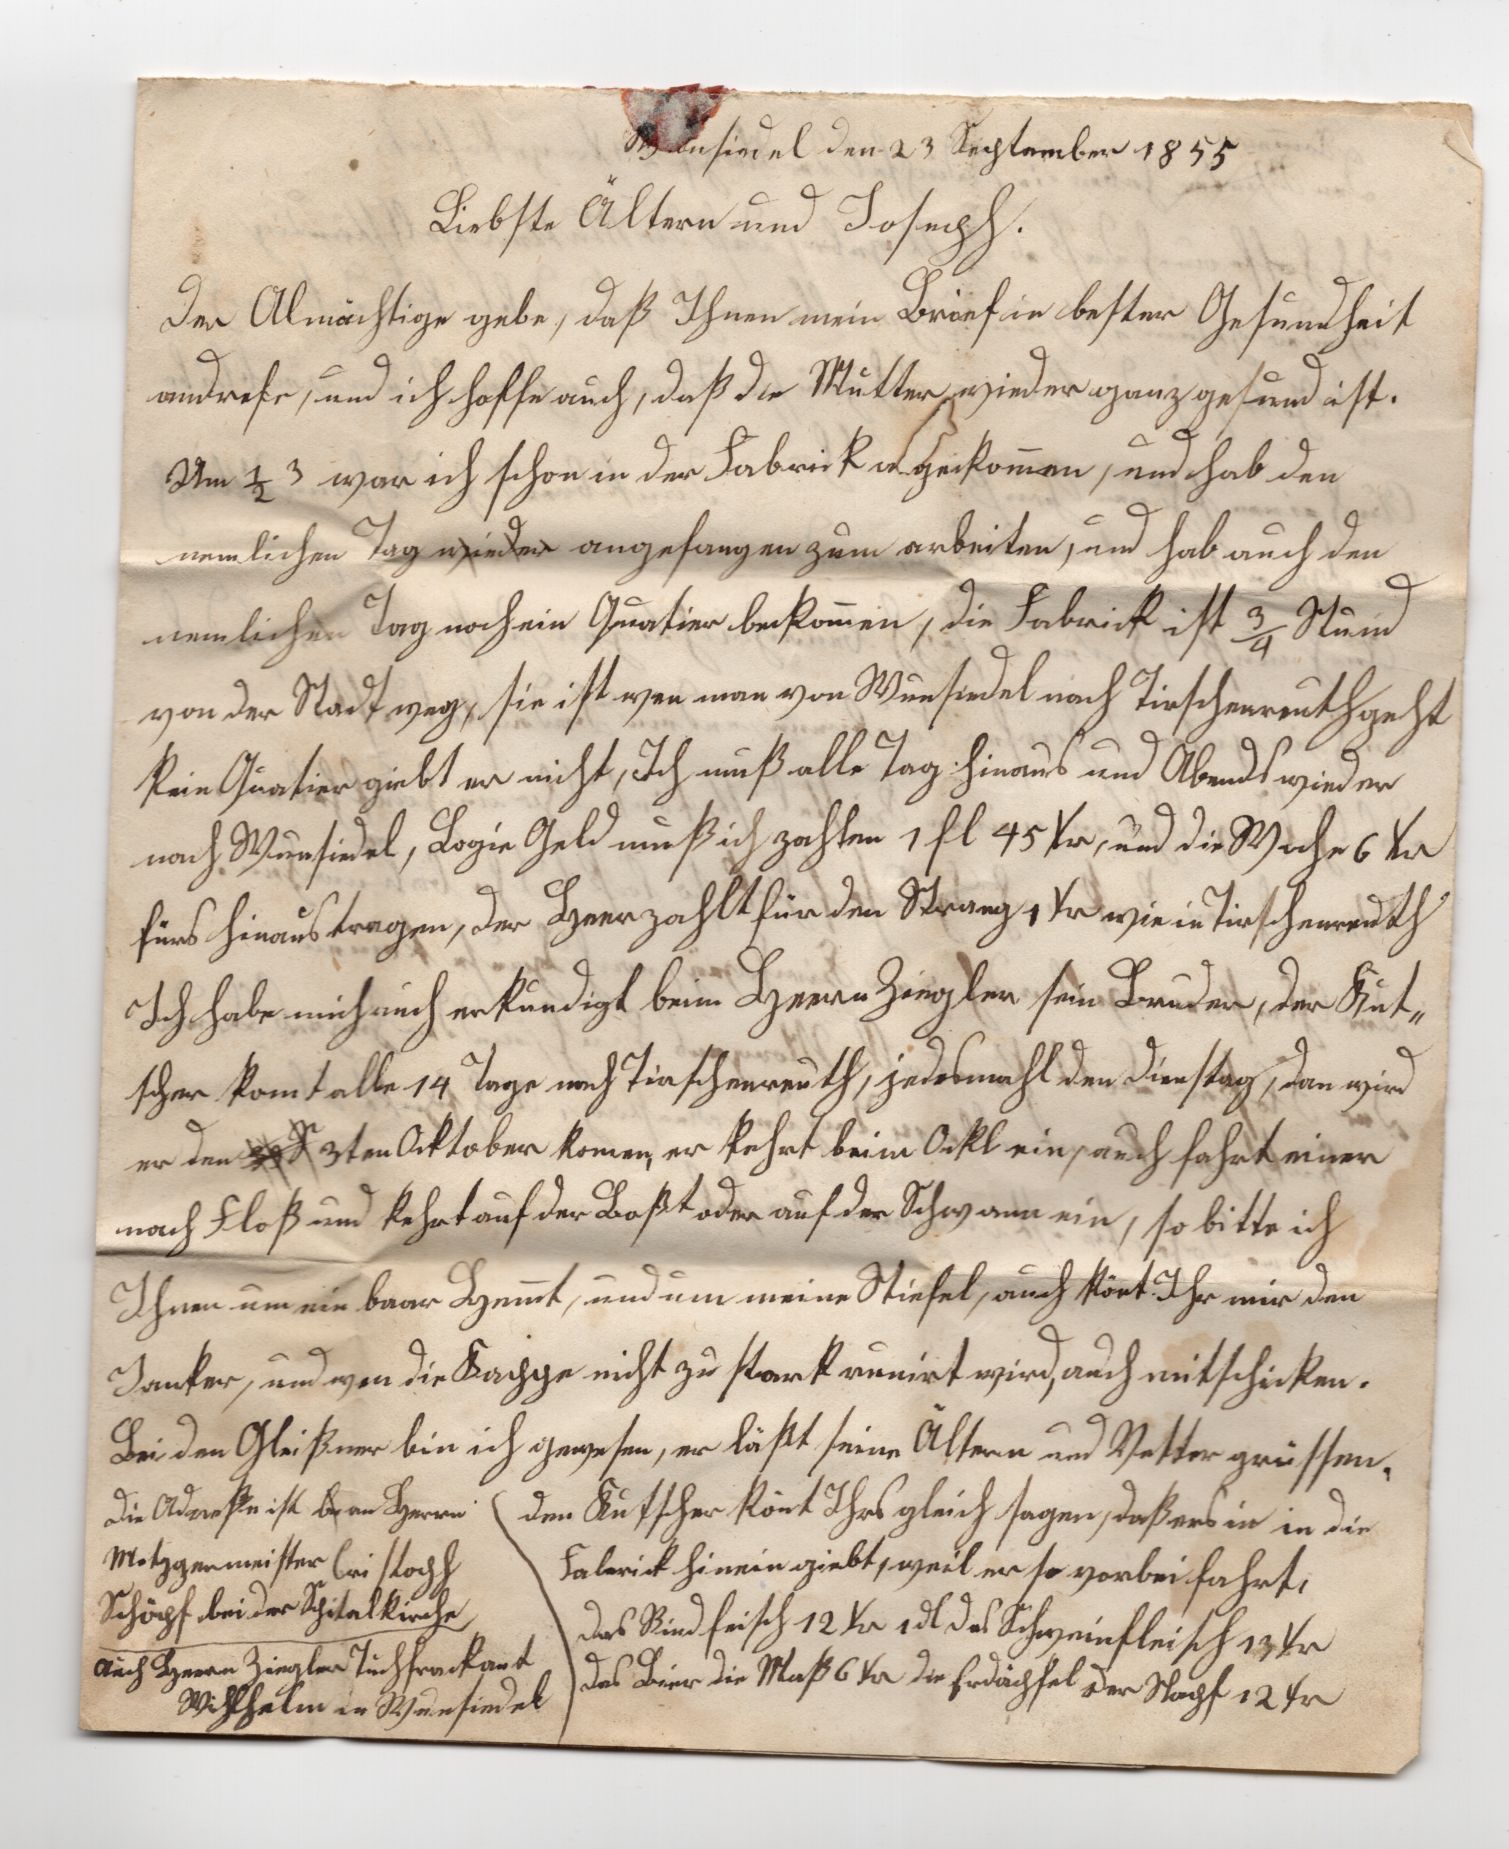 Wunsiedel den 23 September 1855
Liebste Ältern und Joseph.
Der Almächtige gebe, daß Ihnen mein Brief in bester Gesundheit
andrefe, und ich hoffe auch, daß die Mutter wieder ganz gesund ist.
Um ½ 3 war ich schon in der Fabrick gekom̄en, und hab den
nemlichen Tag wieder angefangen zum arbeiten, und hab auch den
nemlichen Tag noch ein Quatier bekom̄en, die Fabrick ist ¾ Stund
von der Stadt weg, sie ist wen man von Wunsiedel nach Tirschenreuth geht
kein Quatier giebt er nicht, Ich muß alle Tag hinaus und Abends wieder
nach Wunsiedel, Logie Geld muß ich zahlen 1 fl 45 Xr, und die Woche 6 Xr
fürs hinaustragen, der Heer zahlt für den Strang 1 Xr wie in Tirschenreuth
Ich habe mich auch erkundigt beim Heern Ziegler sein Bruder, der Kut„
scher komt alle 14 Tage nach Tirschenreuth, jedesmahl den Dienstag, dan wird
er den 3ten Ocktober komen, er kehrt beim Ockl ein, auch fahrt einer
nach Floß und kehrt auf der Boßt oder auf der Schwann ein, so bitte ich
Ihnen um ein baar Hem̄t, und um meine Stiefel, auch kön̄t Ihr mir den
Janker, und wen die Kappe nicht zu stark runirt wird, auch mitschicken.
Bei den Gleißner bin ich gewesen, er läßt seine Ältern und Vetter grüssen.
Die Adreße ist an Herrn
Metzgermeister Cristoph
Schöpf bei der Spitalkirche
Auch Heern Ziegler Tuchfrackant
Wihlhelm in Wunsiedel
den Kutscher kön̄t Ihrs gleich sagen, daß ers in in die
Fabrick hinein giebt, weil er so vorbei fahrt.
Das Rindfeisch 12 Xr 1 dl das Schweinfleisch 13 Xr
Das Bier die Maß 6 Xr die Erdäpfel der Napf 12 Xr